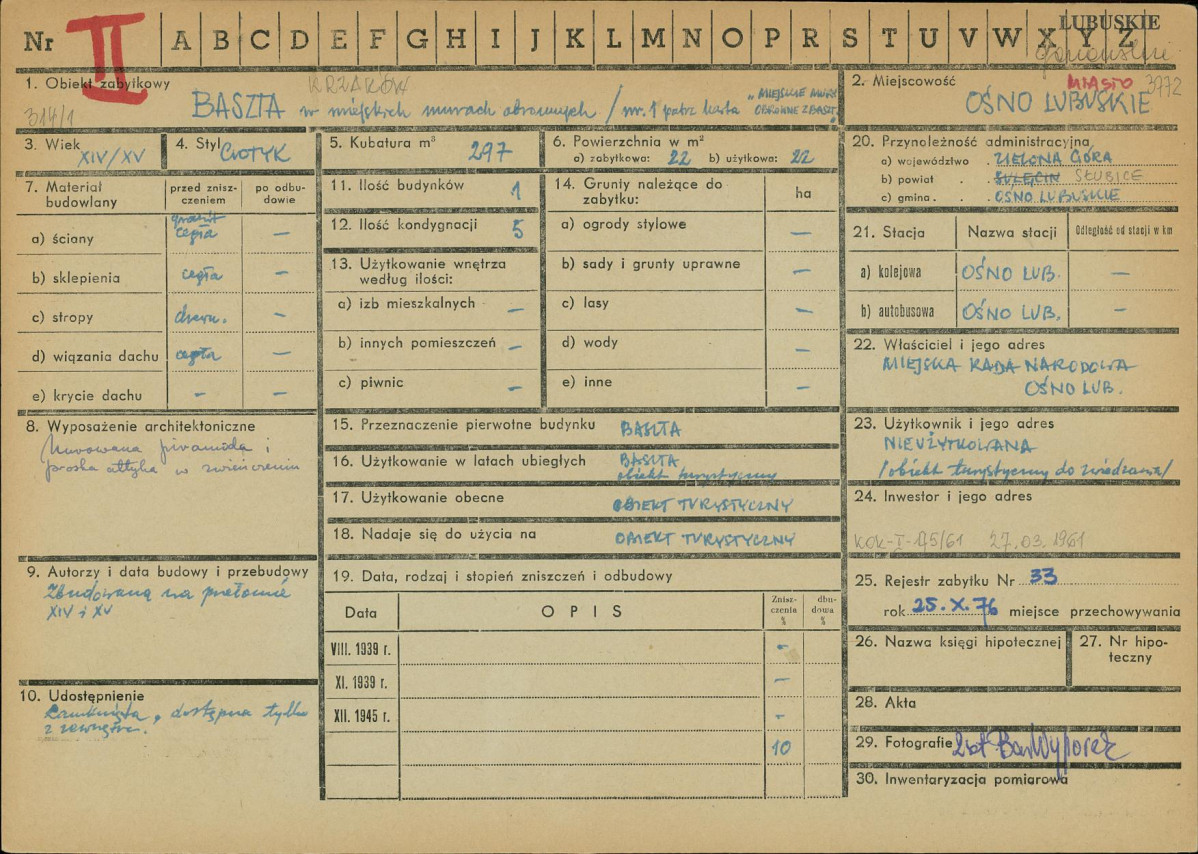 LUBUSKIE
Nr II A B C D E F G H I J K L M N O P R S T U V W X Y Z
1. Obiekt zabytkowy KRZAKÓW
314/1
BASZTA w miejskich murach obronnych / nr. 1 patrz karta "MIEJSKIE MURY
OBRONNE Z BASZT."
2. Miejscowość MIASTO 3772
OŚNO LUBUSKIE
3. Wiek
XIV/XV
4. Styl GOTYK
5. Kubatura m³
297
6. Powierzchnia w m²
a) zabytkowa: 22 b) użytkowa: 22
20. Przynależność administracyjna
a) województwo . ZIELONA GÓRA
b) powiat . . SULĘCIN SŁUBICE
c) gmina . . OŚNO LUBUSKIE
7. Materiał
budowlany
przed znisz-
czeniem
po odbu-
dowie
a) ściany granit
cegła —
b) sklepienia cegła —
c) stropy drewn. —
d) wiązania dachu cegła —
e) krycie dachu — —
11. Ilość budynków 1
12. Ilość kondygnacji 5
13. Użytkowanie wnętrza
według ilości:
a) izb mieszkalnych —
b) innych pomieszczeń —
c) piwnic —
14. Grunty należące do
zabytku: ha
a) ogrody stylowe —
b) sady i grunty uprawne —
c) lasy —
d) wody —
e) inne —
21. Stacja Nazwa stacji Odległość od stacji w km
a) kolejowa OŚNO LUB. —
b) autobusowa OŚNO LUB. —
22. Właściciel i jego adres
MIEJSKA RADA NARODOWA
OŚNO LUB.
8. Wyposażenie architektoniczne
Murowana piramida i
proska attyka w zwieńczeniu
15. Przeznaczenie pierwotne budynku BASZTA
16. Użytkowanie w latach ubiegłych BASZTA
obiekt turystyczny
17. Użytkowanie obecne OBIEKT TURYSTYCZNY
18. Nadaje się do użycia na OBIEKT TURYSTYCZNY
23. Użytkownik i jego adres
NIEUŻYTKOWANA
/obiekt turystyczny do zwiedzania/
24. Inwestor i jego adres
KOK-I-175/61 27.03.1961
9. Autorzy i data budowy i przebudowy
Zbudowaną na przełomie
XIV i XV
19. Data, rodzaj i stopień zniszczeń i odbudowy
Data OPIS Znisz-
czenia
%
dbu-
dowa
%
VIII. 1939 r. —
XI. 1939 r. —
XII. 1945 r. —
10
25. Rejestr zabytku Nr 33
rok 25.X.76 miejsce przechowywania
26. Nazwa księgi hipotecznej
27. Nr hipo-
teczny
10. Udostępnienie
Zamknięta, dostępna tylko
z zewnątrz.
28. Akta
29. Fotografie
30. Inwentaryzacja pomiarowa